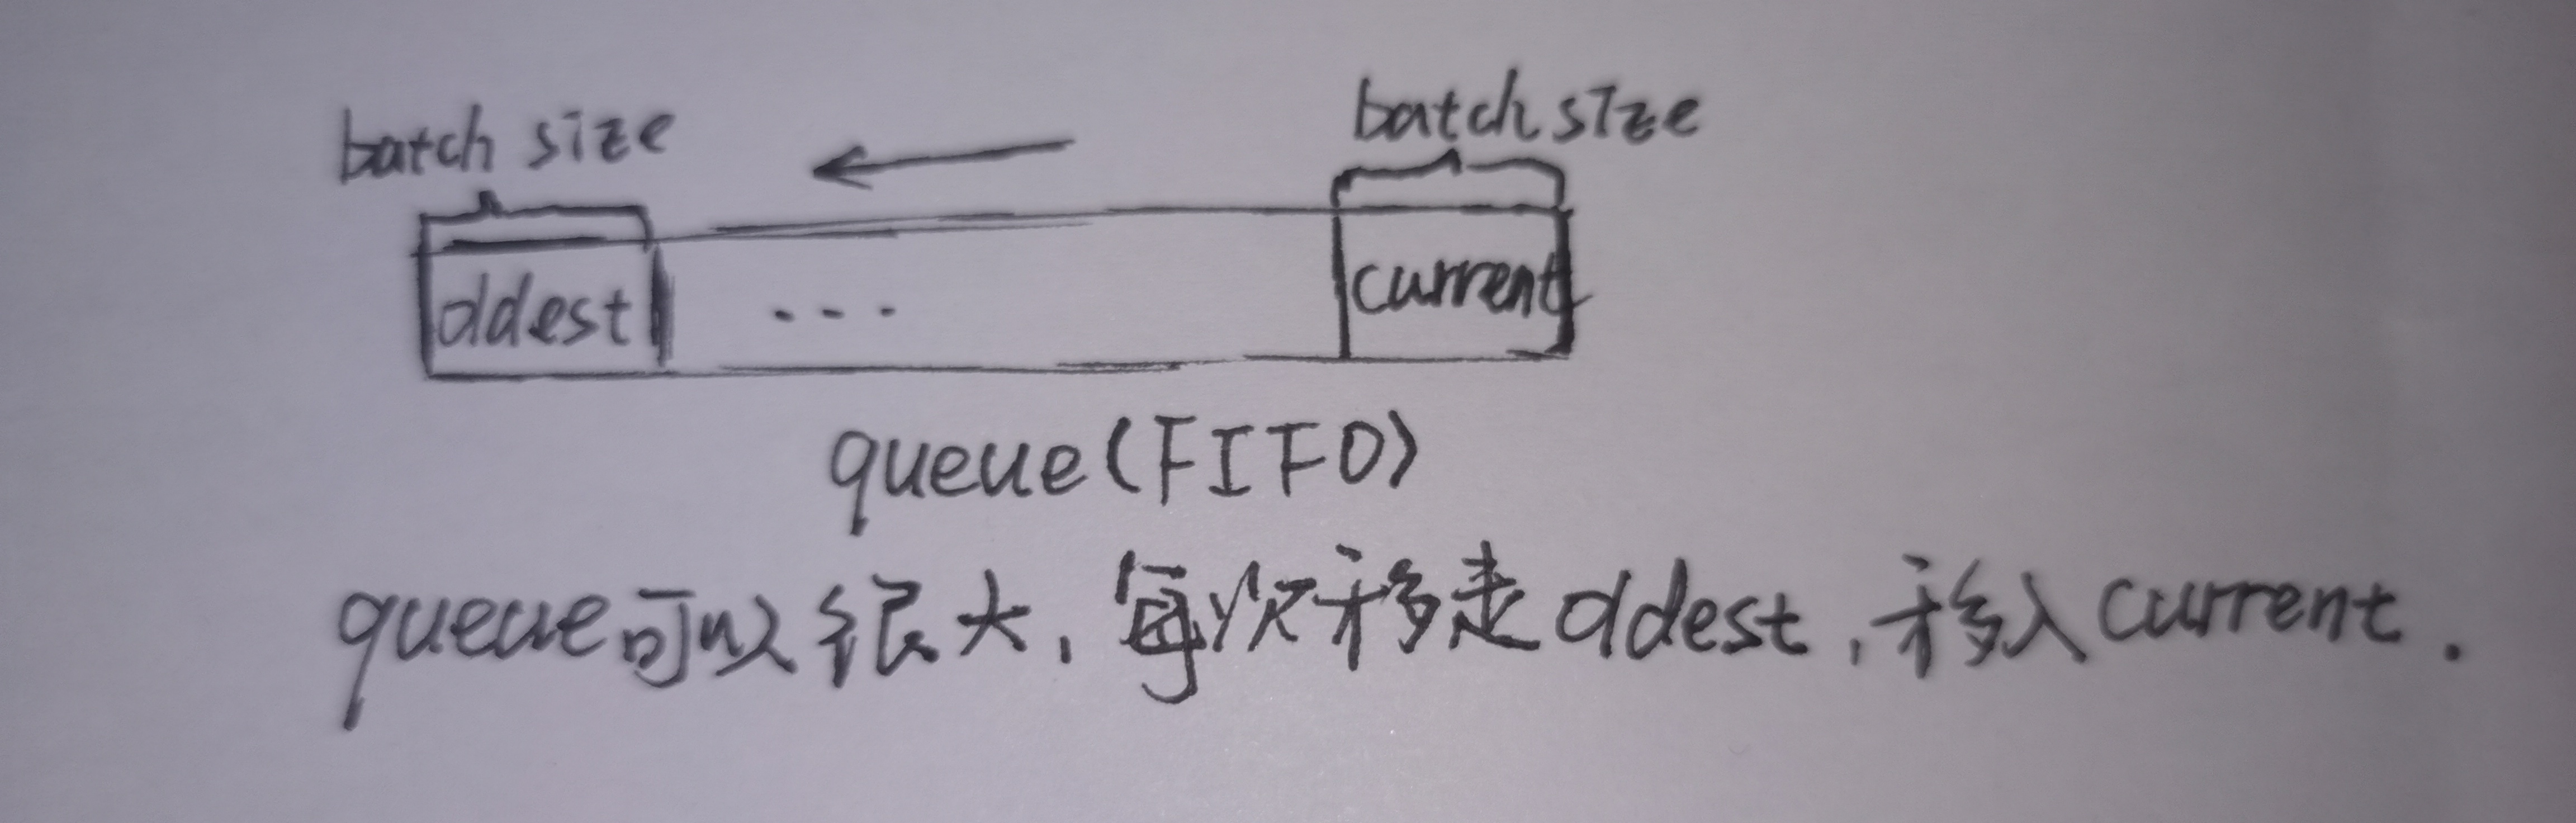 batch size
batch size
oldest ... current
queue(FIFO)
queue可以很大,每次移走oldest,移入current.